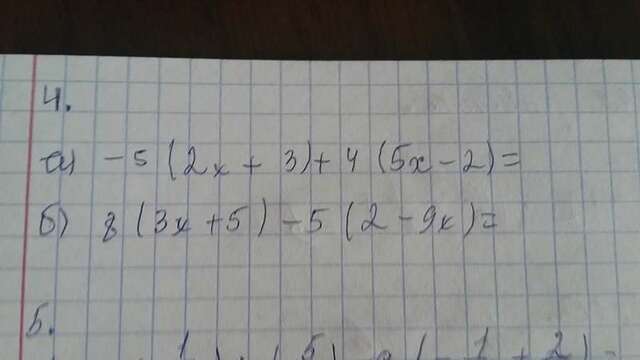 4.
а) -5(2x + 3) + 4(5x - 2) =
б) 8(3x + 5) - 5(2 - 9x) =
5.